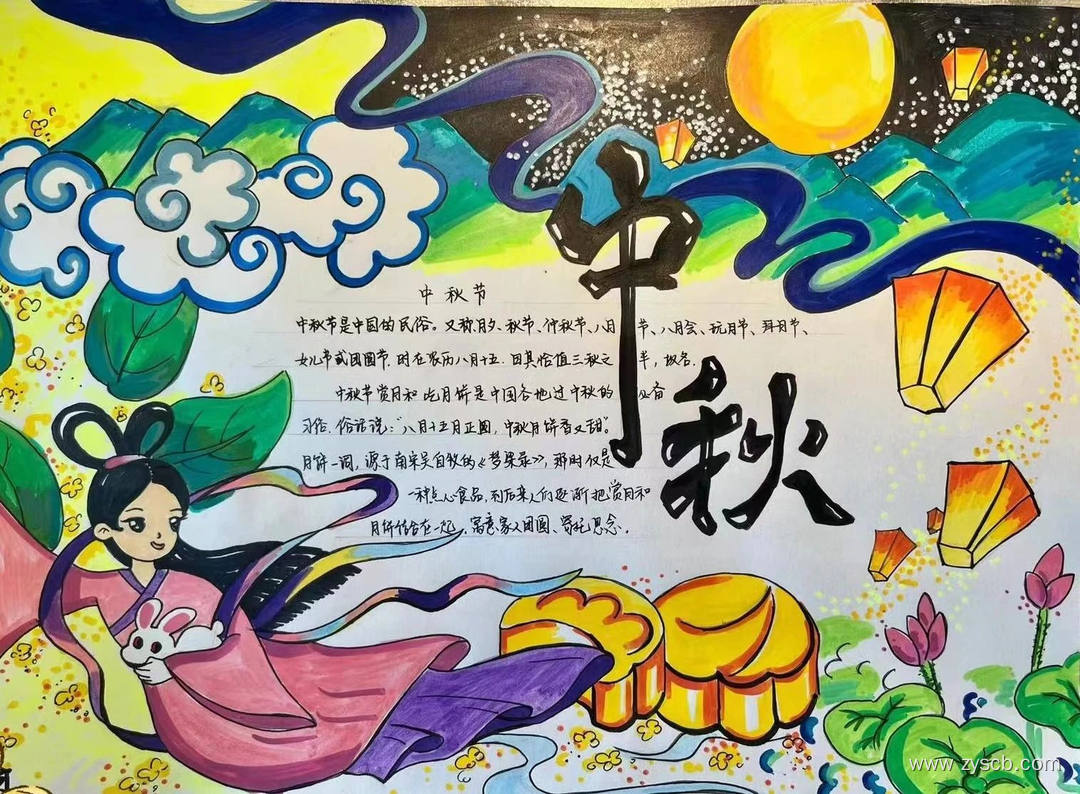 中秋
中秋节
中秋节是中国的民俗。又称月夕、秋节、仲秋节、八月节、八月会、玩月节、拜月节、
女儿节或团圆节,时在农历八月十五.因其恰值三秋之半,故名.
中秋节赏月和吃月饼是中国各地过中秋的必备
习俗.俗话说:“八月十五月正圆,中秋月饼香又甜”。
月饼一词,源于南宋吴自牧的《梦梁录》,那时仅是
一种点心食品,到后来人们逐渐把赏月和
月饼结合在一起,寓意家人团圆、寄托思念.
www.zyscb.com